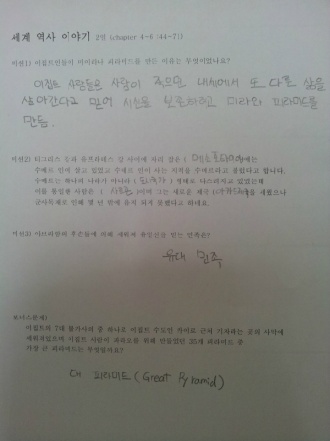 세계 역사 이야기 2일 (chapter 4-6 :44-71)
미션1) 이집트인들이 미이라나 피라미드를 만든 이유는 무엇이었나요?
이집트 사람들은 사람이 죽으면 내세에서 또 다른 삶을
살아간다고 믿어 시신을 보존하려고 미라와 피라미드를
만듦.
미션2) 티그리스 강과 유프라테스 강 사이에 자리 잡은 ( 메소포타미아)에는
수메르 인이 살고 있었고 수메르 인이 사는 지역을 수메르라고 불렀다고 합니다.
수메르는 하나의 나라가 아니라 (도시국가) 형태로 나누어지고 있었는데
이를 통일한 사람은 ( 사르곤 )이며 그는 새로운 제국 ( )을 세웠으나
군사독재로 인해 몇 년 밖에 유지 되지 못했다고 하네요.
미션3) 아브라함의 후손들에 의해 세워져 유일신을 믿는 민족은?
유대 민족
보너스문제)
이집트의 7대 불가사의 중 하나로 이집트 수도인 카이로 근처 기자라는 곳의 사막에
세워져있으며 이집트 사람이 파라오를 위해 만들었던 35개 피라미드 중
가장 큰 피라미드는 무엇일까요?
대 피라미드 (Great Pyramid)